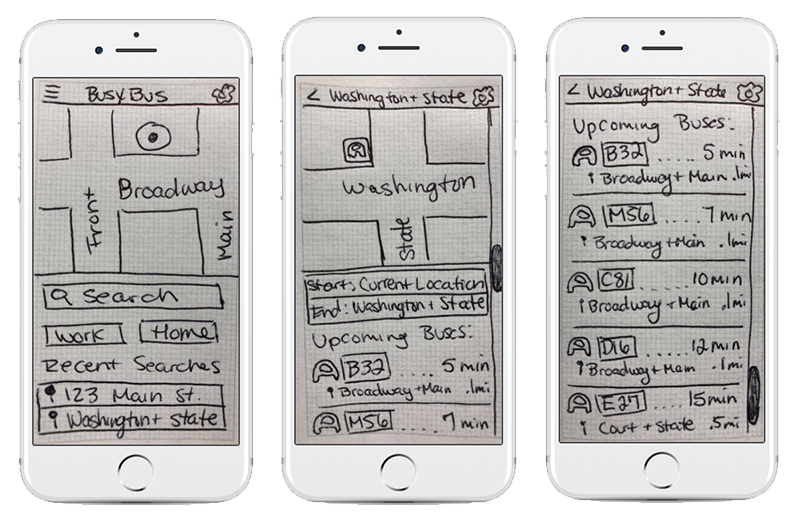 BusyBus
Broadway
Front
Main
Search
Work
Home
Recent Searches
123 Main St.
Washington + State
< Washington + State
Washington
State
Start: Current Location
End: Washington + State
Upcoming Buses:
B32 ..... 5 min
Broadway + Main .1mi
M56 .... 7 min
< Washington + State
Upcoming Buses:
B32 ..... 5 min
Broadway + Main .1mi
M56 .... 7 min
Broadway + Main .1mi
C81 ..... 10 min
Broadway + Main .1mi
D16 ..... 12 min
Broadway + Main .1mi
E27 .... 15 min
Court + State .5mi